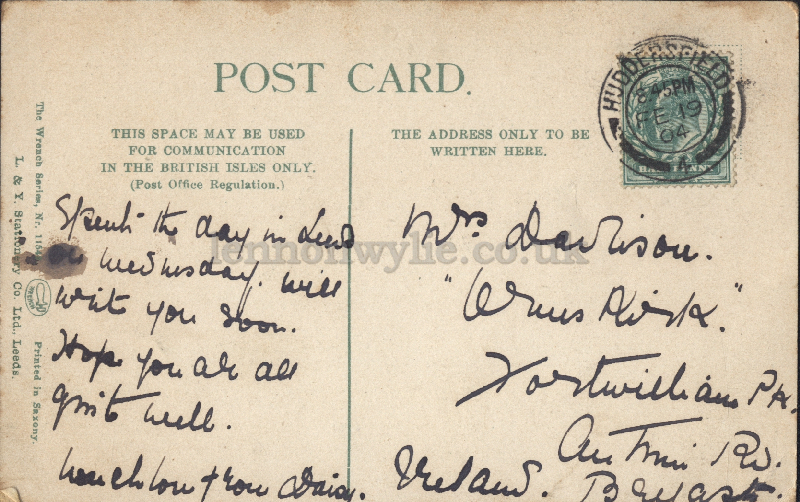 POST CARD.
THIS SPACE MAY BE USED
FOR COMMUNICATION
IN THE BRITISH ISLES ONLY.
(Post Office Regulation.)
THE ADDRESS ONLY TO BE
WRITTEN HERE.
HUDDERSFIELD
8.45PM
FE 19
04
The Wrench Series, Nr.
Printed in Saxony.
L. & Y. Stationery Co. Ltd., Leeds.
Spent the day in Leeds
on Wednesday. will
write you soon.
Hope you are all
quite well.
much love from Daisy.
Mrs Davison.
Fortwilliam Pk.
Antrim Rd.
Ireland. Belfast.
lennonwylie.co.uk